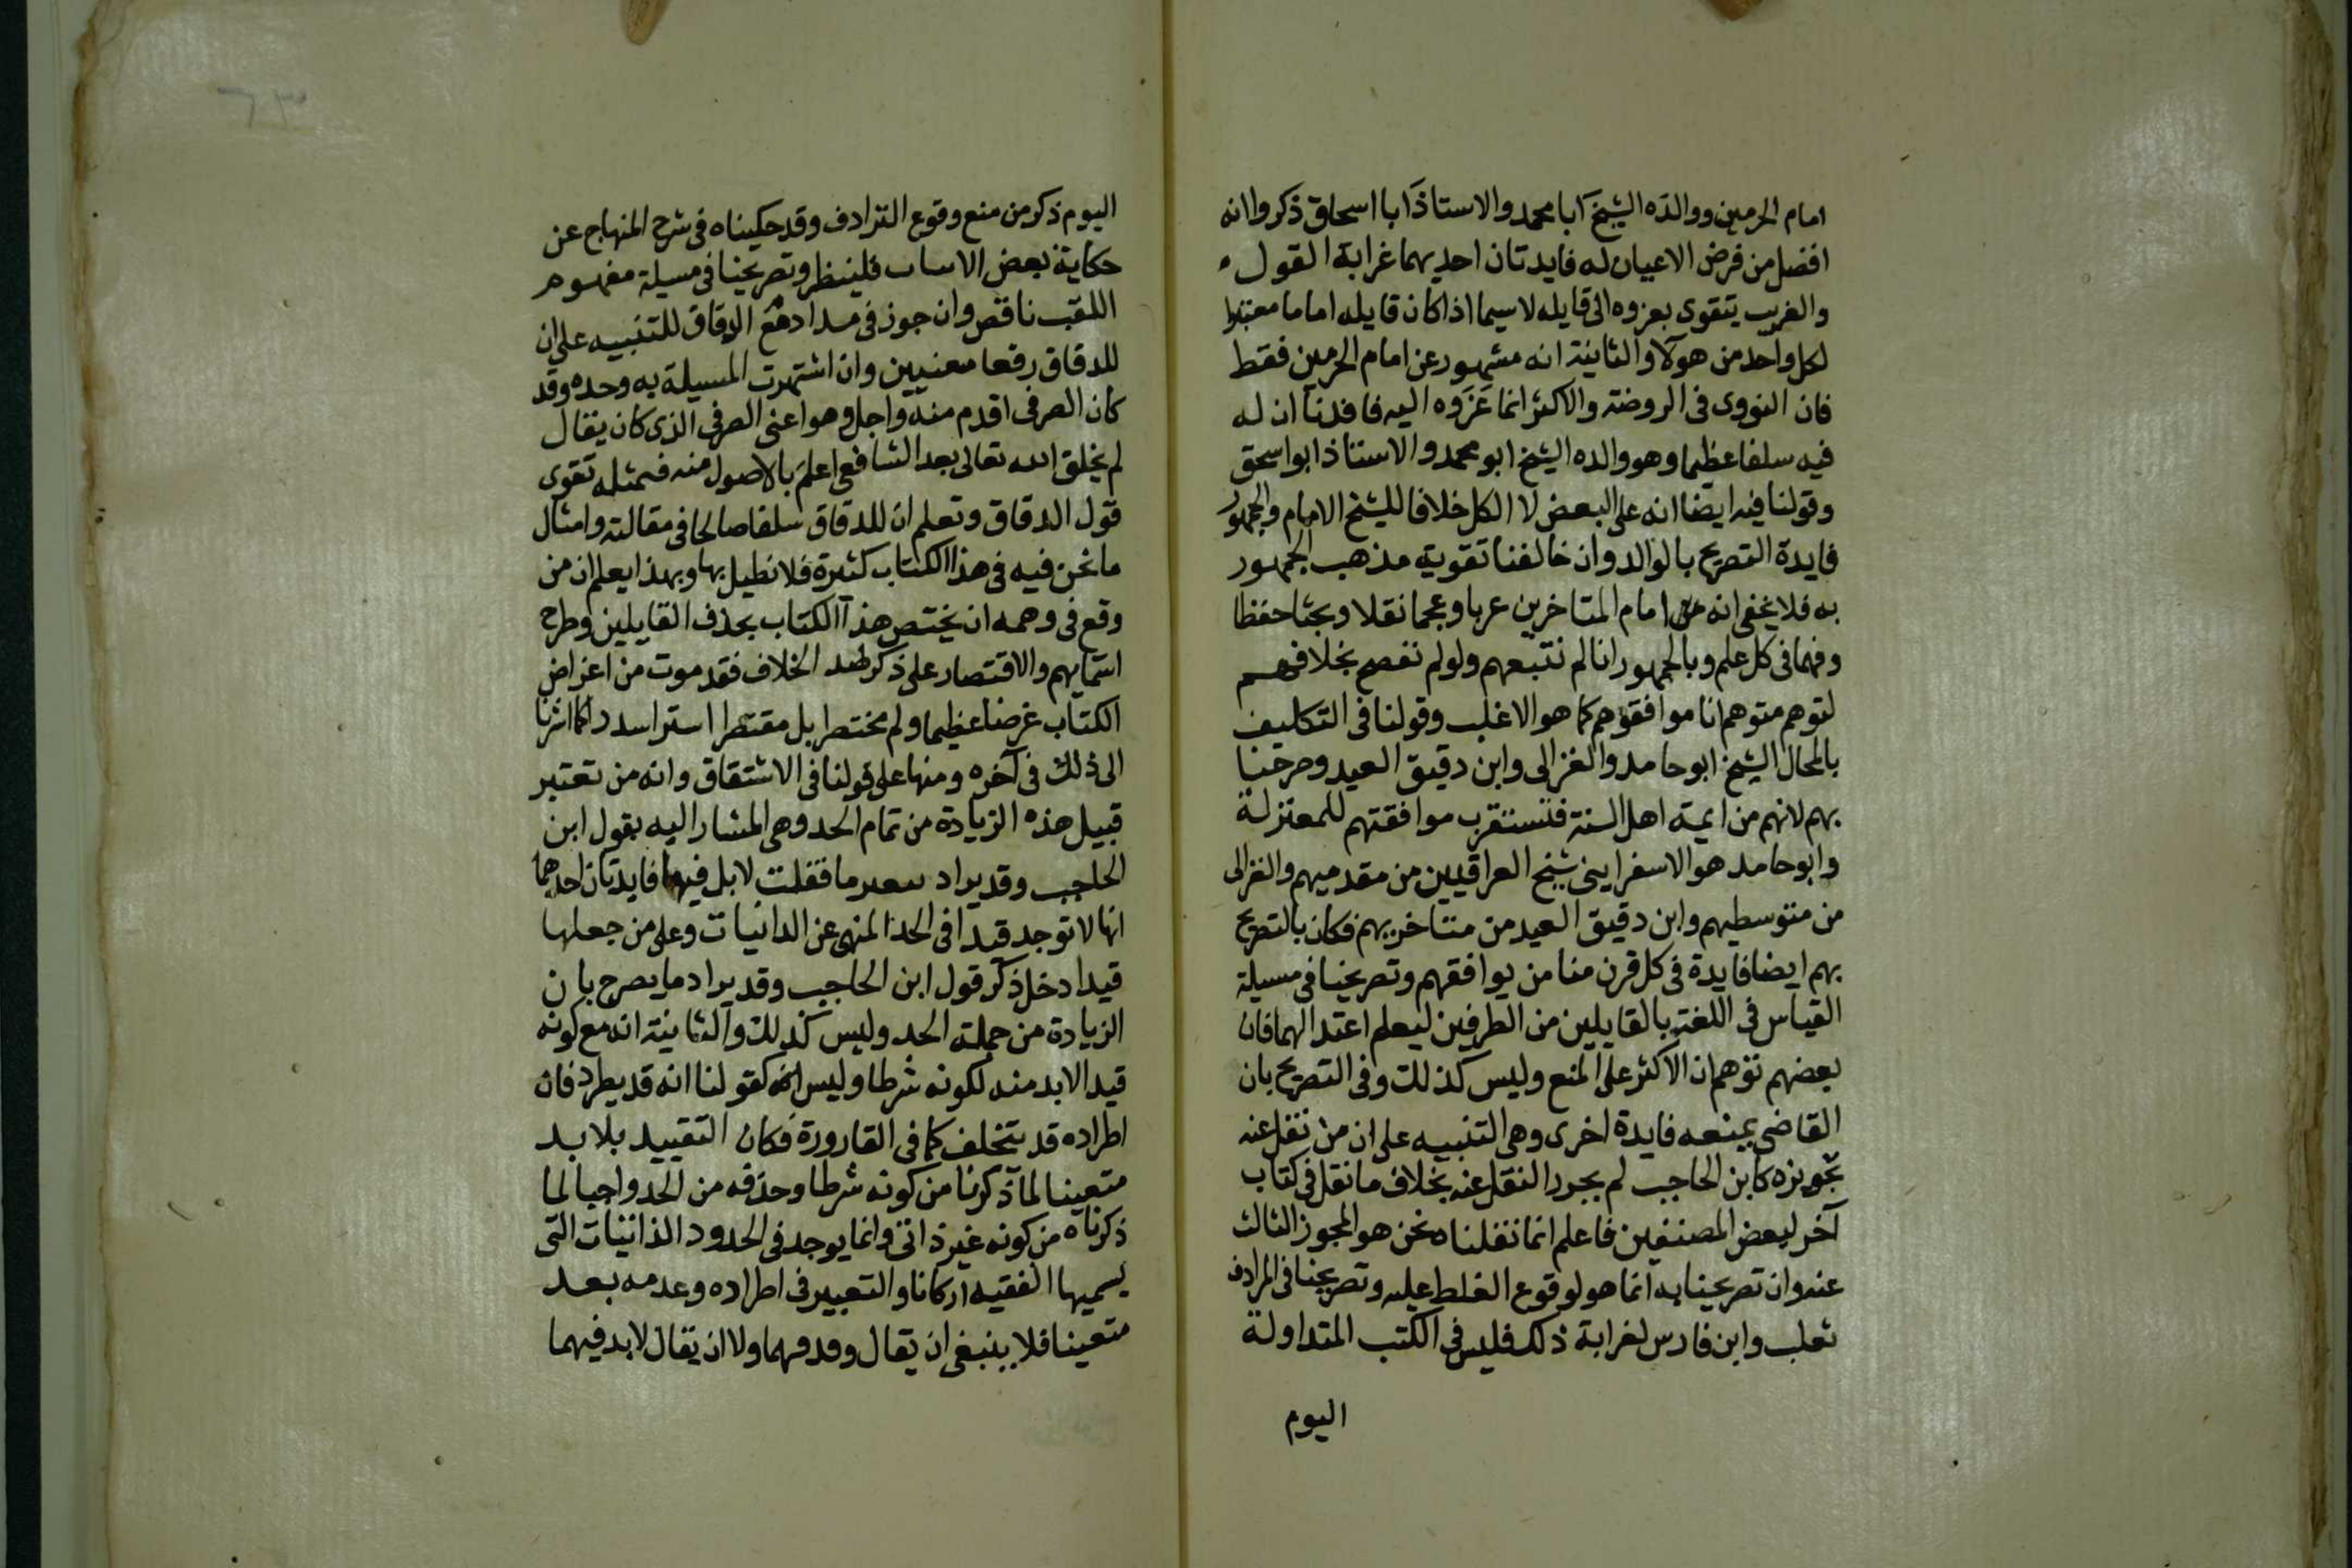 امام الحرمين ووالده الشيخ ابا محمد والاستاذ ابا اسحاق ذكروا انه
افضل من فرض الاعيان له فايدتان احديهما غرابة القول
والغريب يتقوى بعزوه الى قايله لا سيما اذا كان قايله اماما معتبرا
لكل واحد من هولآ والثانية انه مشهور عن امام الحرمين فقط
فان النووى فى الروضة والاكثر انما عَزَوه اليه فافدنا ان له
فيه سلفا عظيما وهو والده الشيخ ابو محمد والاستاذ ابو اسحق
وقولنا فيه ايضا انه على البعض لا الكل خلافا للشيخ الامام والجمهور
فايدة التصريح بالوالد وان خالفنا تقوية مذهب الجمهور
به فلا يخفى انه امام المتاخرين عربا وعجما نقلا وبحثا حفظا
وفهما فى كل علم وبالجمهور انا لم نتبعهم ولو لم نفصح بخلافهم
لتوهم متوهم انا موافقوهم كما هو الاغلب وقولنا فى التكليف
بالمحال الشيخ ابو حامد والغزالى وابن دقيق العيد وصرحنا
بهم لانهم من ايمة اهل السنة فتستغرب موافقتهم للمعتزلة
وابو حامد هو الاسفراينى شيخ العراقيين من مقدميهم والغزالى
من متوسطيهم وابن دقيق العيد من متاخريهم فكان بالتصريح
بهم ايضا فايدة فى كل قرن منا من يوافقهم وتصريحنا فى مسيلة
القياس فى اللغة بالقايلين من الطرفين ليعلم اعتدالهما فان
بعضهم توهم ان الاكثر على المنع وليس كذلك وفى التصريح بان
القاضى يمنعه فايدة اخرى وهى التنبيه على ان من نقل عنه
تجويزه كابن الحاجب لم يجرد النقل عنه بخلاف ما نقل فى كتاب
آخر لبعض المصنفين فاعلم انما نقلناه نحن هو المجوز الثالث
عنه وان تصريحنا به انما هو لوقوع الغلط عليه وتصريحنا فى المرادف
ثعلب وابن فارس لغرابة ذلك فليس فى الكتب المتداولة
اليوم
اليوم ذكر من منع وقوع الترادف وقد حكيناه فى شرح المنهاج عن
حكاية بعض فلينظر وتصريحنا فى مسيلة مفهوم
اللقب ناقص وان جوز فى الدقاق للتنبيه على ان
للدقاق رفعا معنيين وان اشتهرت المسيلة به وحده وقد
كان الصرفى اقدم منه واجل وهو اعنى الصرفى الذى كان يقال
لم يخلق الله تعالى بعد الشافعى اعلم بالاصول منه فبمثله تقوى
قول الدقاق وتعلم ان للدقاق سلفا صالحا فى مقالته وامثال
ما نحن فيه فى هذا الكتاب كثيرة فلا نطيل بها وبهذا يعلم ان من
وقع فى وهمه ان يختص هذا الكتاب بحذف القايلين وطرح
اسمايهم والاقتصار على ذكر الخلاف فقد موت من اغراض
الكتاب غرضا عظيما ولم مختصرا بل مقتصرا كما اشرنا
الى ذلك فى آخره ومنها على قولنا فى الاشتقاق وانه من تعتبر
قبيل هذه الزيادة من تمام الحد وهى المشار اليه بقول ابن
الحاجب وقد يراد ما فقلت لا بل فيها فايدتان احدهما
انها لا توجد قيدا فى الحد المنهى عن الدانيات وعلى من جعلها
قيدا دخل ذكر قول ابن الحاجب وقد يراد ما يصرح بان
الزيادة من جملة الحد وليس كذلك والثانية انه مع كونه
قيد الابد منه لكونه شرطا وليس كقولنا انه قد يطرد فان
اطراده قد يتخلف كما فى القارورة فكان التقييد بلا بد
متعينا لما ذكرنا من كونه شرطا وحذفه من الحد واجبا لما
ذكرناه من كونه غير ذاتى وانما يوجد فى الحدود الذاتيات التى
يسميها الفقيه اركانا والتعبير فى اطراده وعدمه بعد
متعينا فلا ينبغى ان يقال ولا ان يقال لا بد فيهما